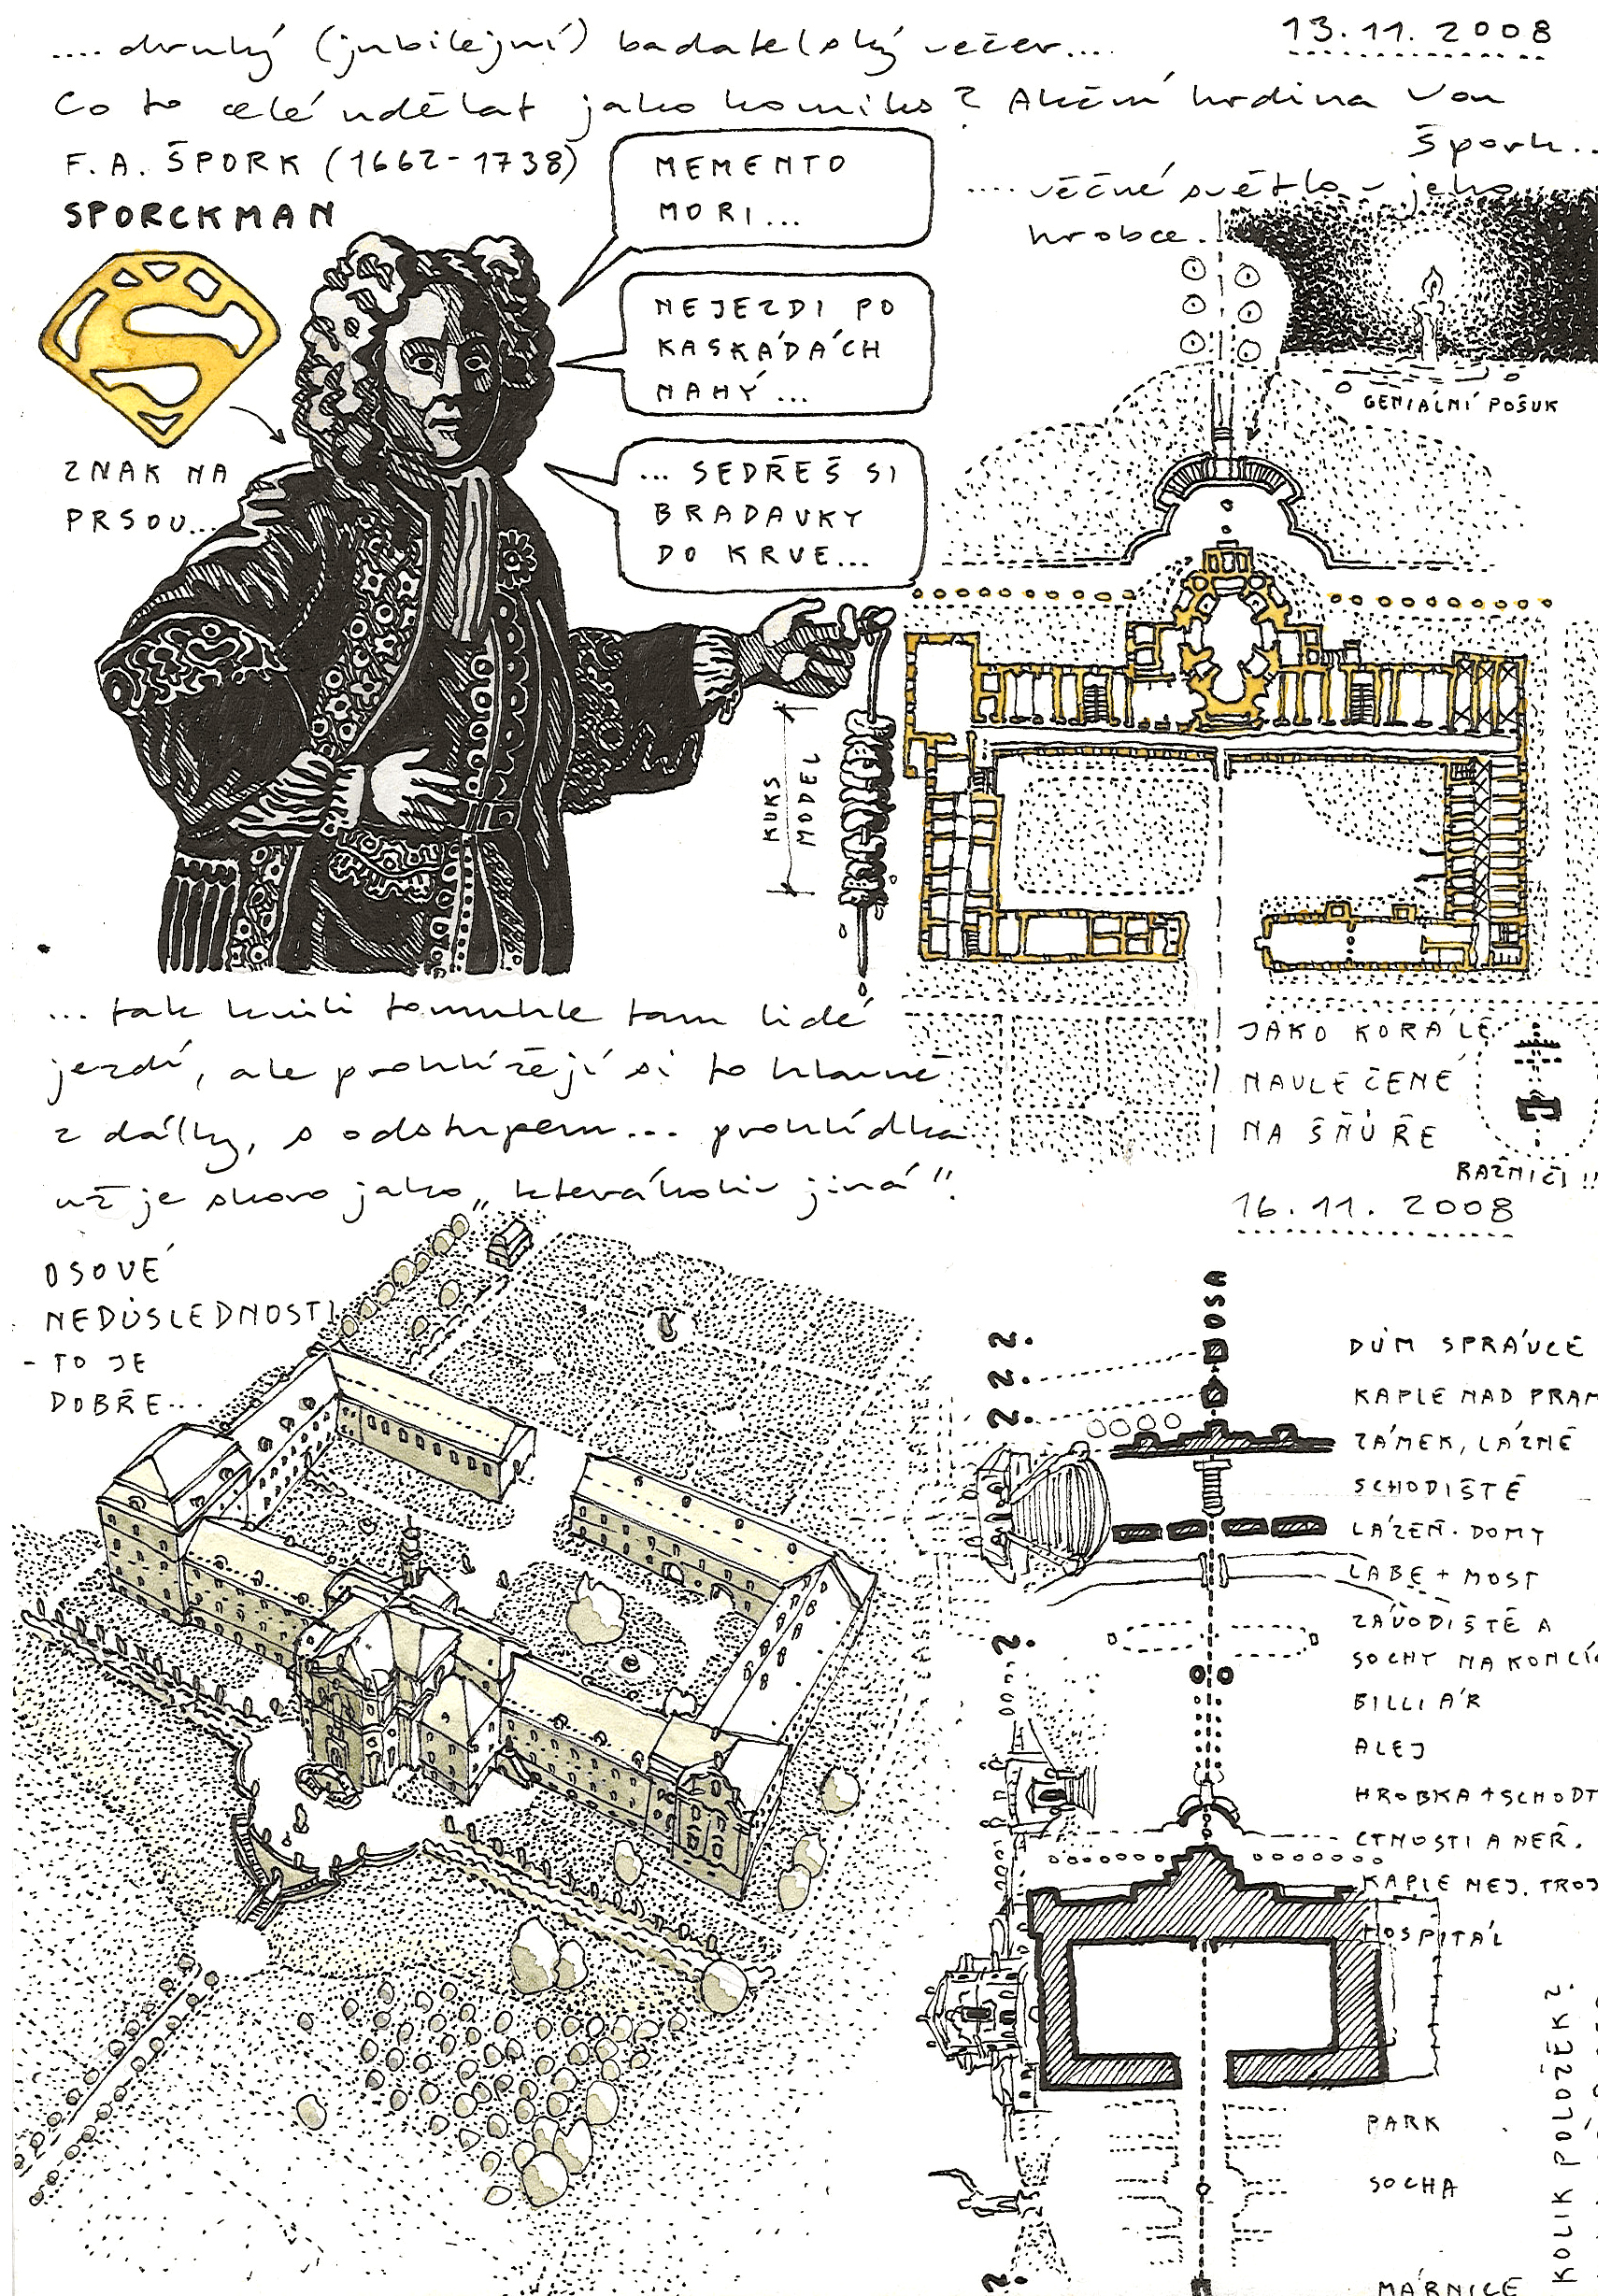 .... druhý (jubilejní) badatelský večer....
13.11.2008
Co to celé udělat jako komiks? Akční hrdina Von
Špork..
F. A. ŠPORK (1662-1738)
SPORCKMAN
ZNAK NA
PRSOU...
MEMENTO
MORI...
NEJEZDI PO
KASKÁDÁCH
NAHÝ...
... SEDŘEŠ SI
BRADAVKY
DO KRVE...
.... věčné světlo v jeho
hrobce..
GENIÁLNÍ POŠUK
KUKS
MODEL
... tak kvůli tomuhle tam lidé
jezdí, ale prohlížejí si to hlavně
z dálky, s odstupem... prohlídka
už je skoro jako „kterákoliv jiná".
JAKO KORÁLE
NAVLEČENÉ
NA ŠŇŮŘE
RAŽNIČI!!
16.11.2008
OSOVÉ
NEDŮSLEDNOSTI
- TO JE
DOBŘE...
OSA
?.
?.
?.
DŮM SPRÁVCE
KAPLE NAD PRAM
ZÁMEK, LÁZNĚ
SCHODIŠTĚ
LÁZEŇ. DOMY
LABE + MOST
ZÁVODIŠTĚ A
SOCHY NA KONCÍC
?.
BILLIÁR
ALEJ
HROBKA + SCHODT
CTNOSTI A NEŘ.
KAPLE NEJ. TROJ
HOSPITÁL
PARK
SOCHA
?.
MÁRNICE
KOLIK POLOŽEK?